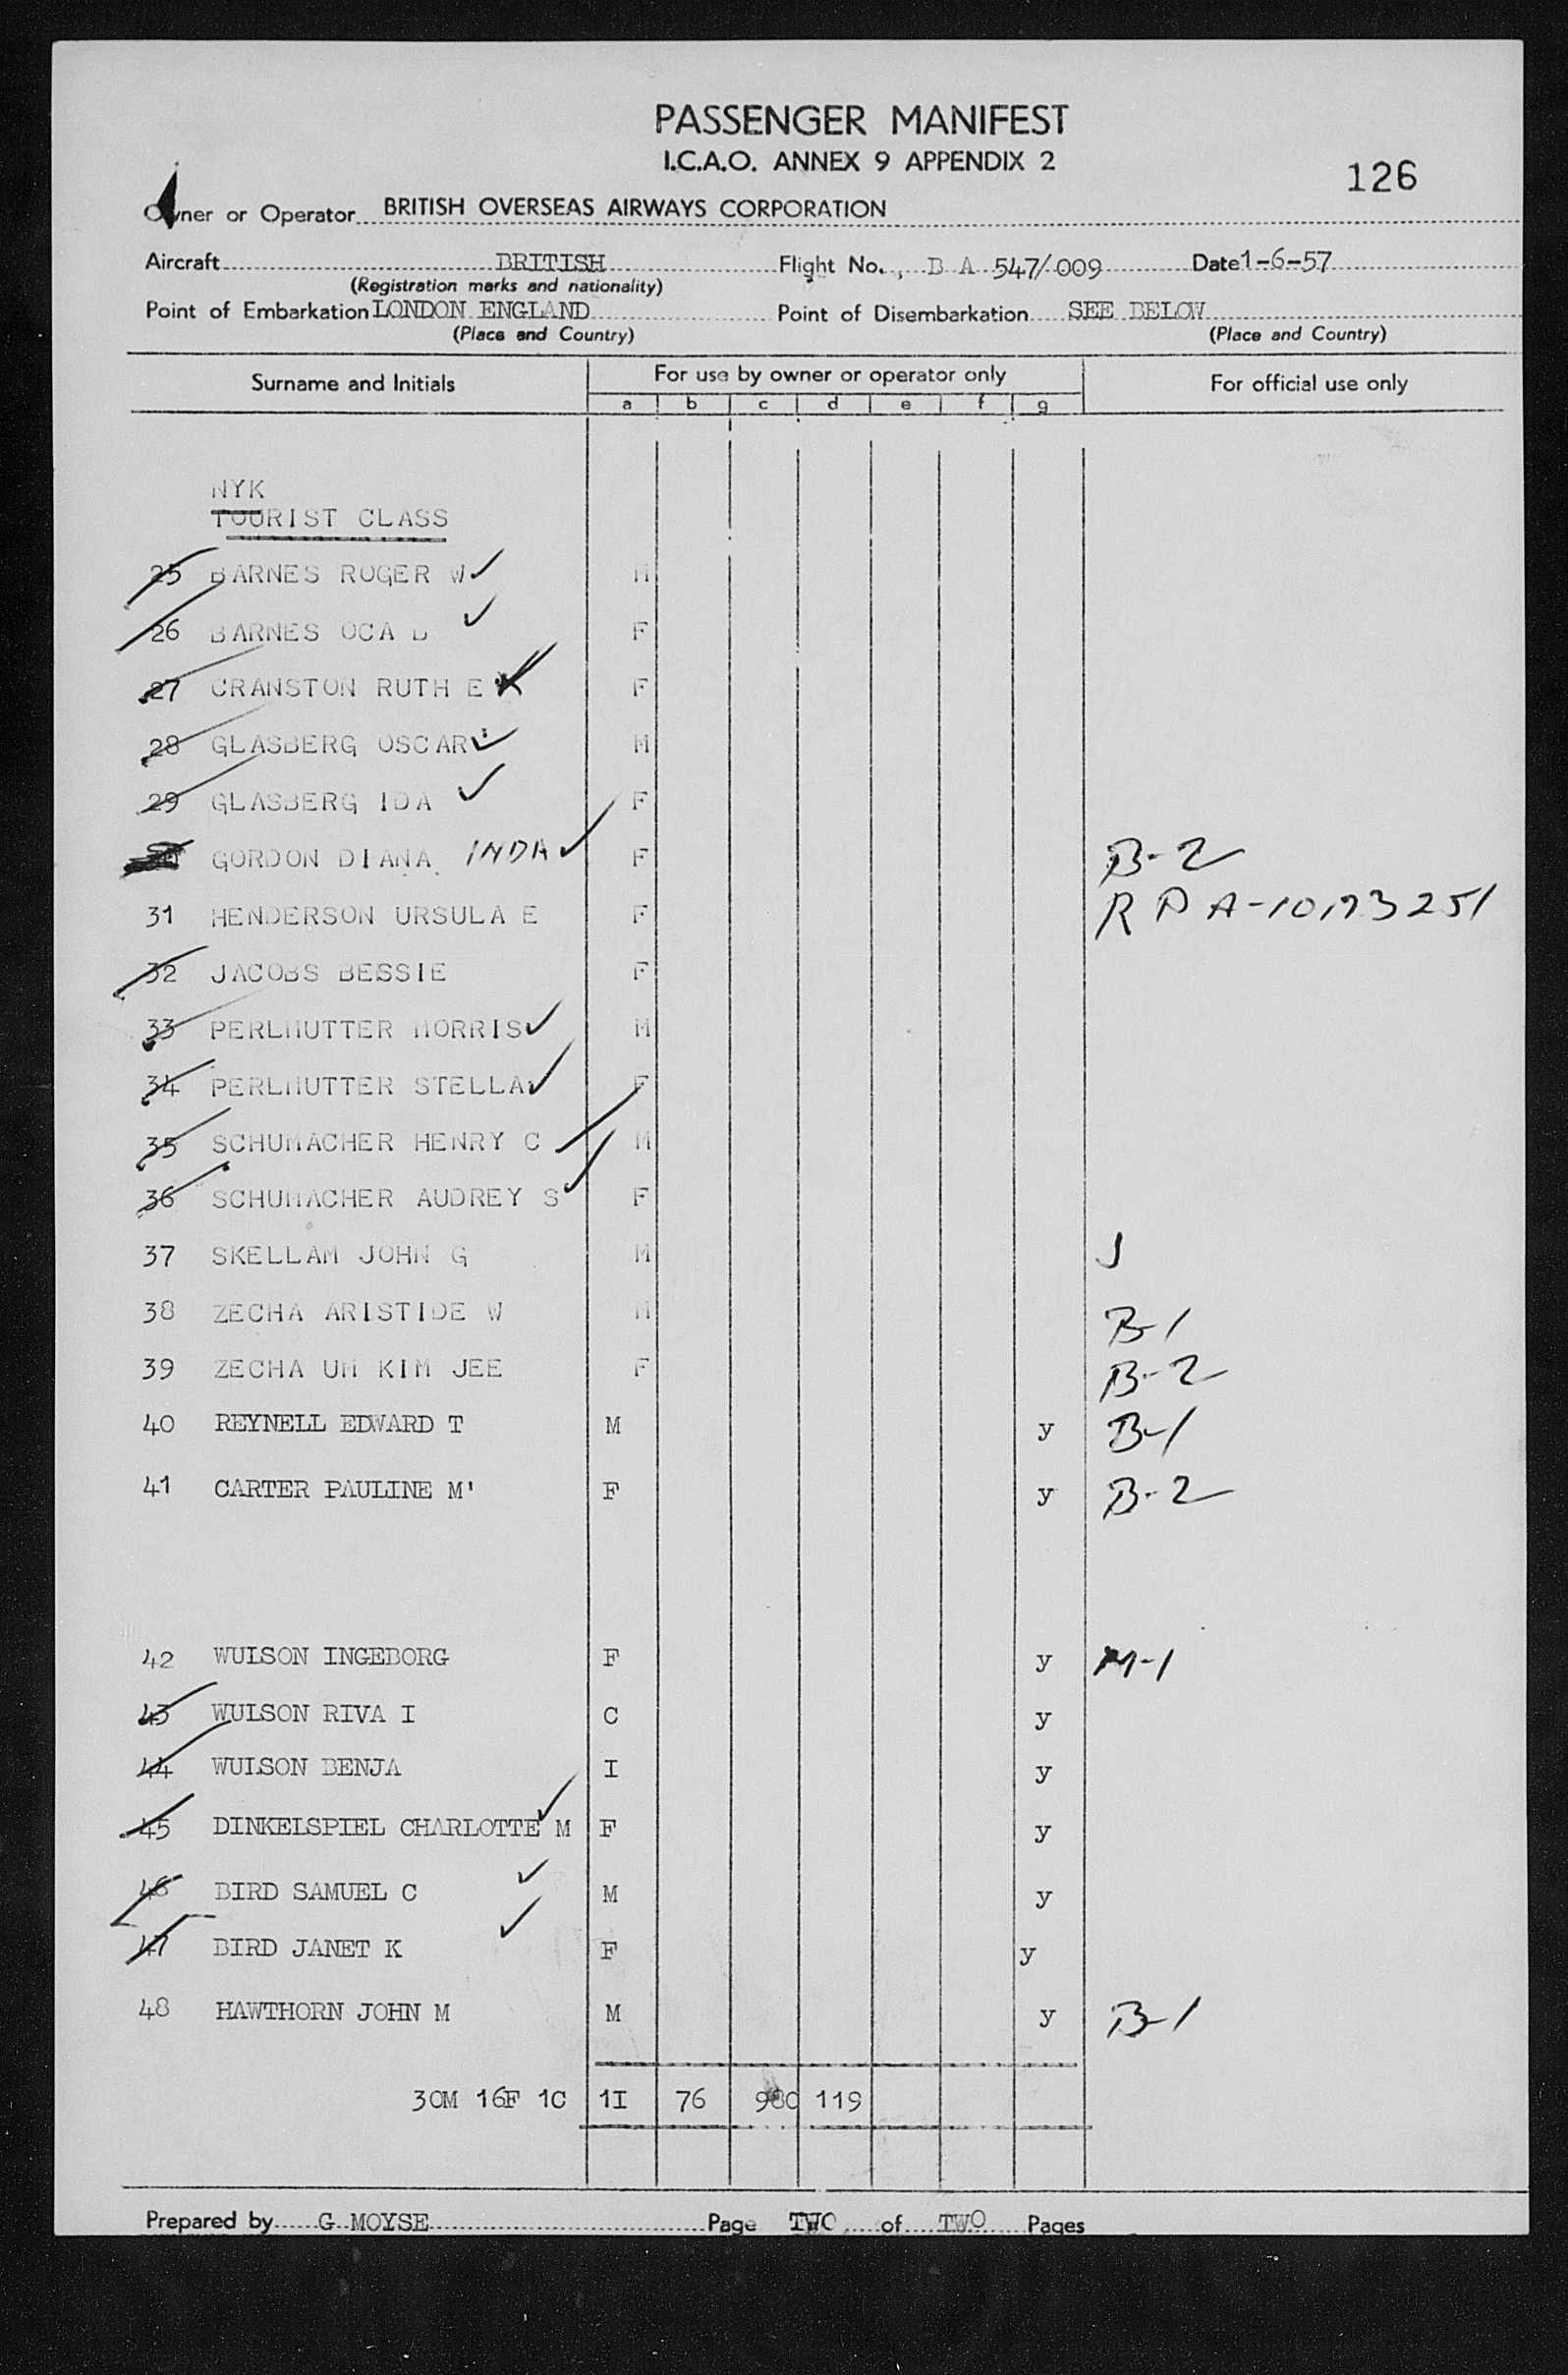 PASSENGER MANIFEST
I.C.A.O. ANNEX 9 APPENDIX 2
126
Owner or Operator BRITISH OVERSEAS AIRWAYS CORPORATION
Aircraft BRITISH Flight No. B A 547/009 Date 1-6-57
(Registration marks and nationality)
Point of Embarkation LONDON ENGLAND Point of Disembarkation SEE BELOW
(Place and Country) (Place and Country)
Surname and Initials For use by owner or operator only For official use only
a b c d e f g
NYK
TOURIST CLASS
25 BARNES ROGER W M
26 BARNES OCA B F
27 CRANSTON RUTH E F
28 GLASBERG OSCAR M
29 GLASBERG IDA F
GORDON DIANA INDA F B-2
31 HENDERSON URSULA E F R P A-10173251
32 JACOBS BESSIE F
33 PERLMUTTER MORRIS M
34 PERLMUTTER STELLA F
35 SCHUMACHER HENRY C M
36 SCHUMACHER AUDREY S F
37 SKELLAM JOHN G M J
38 ZECHA ARISTIDE W M B-1
39 ZECHA UM KIM JEE F B-2
40 REYNELL EDWARD T M y B-1
41 CARTER PAULINE M' F y B-2
42 WULSON INGEBORG F y M-1
43 WULSON RIVA I C y
44 WULSON BENJA I y
45 DINKELSPIEL CHARLOTTE M F y
46 BIRD SAMUEL C M y
47 BIRD JANET K F y
48 HAWTHORN JOHN M M y B-1
30M 16F 1C 1I 76 980 119
Prepared by G MOYSE Page TWO of TWO Pages